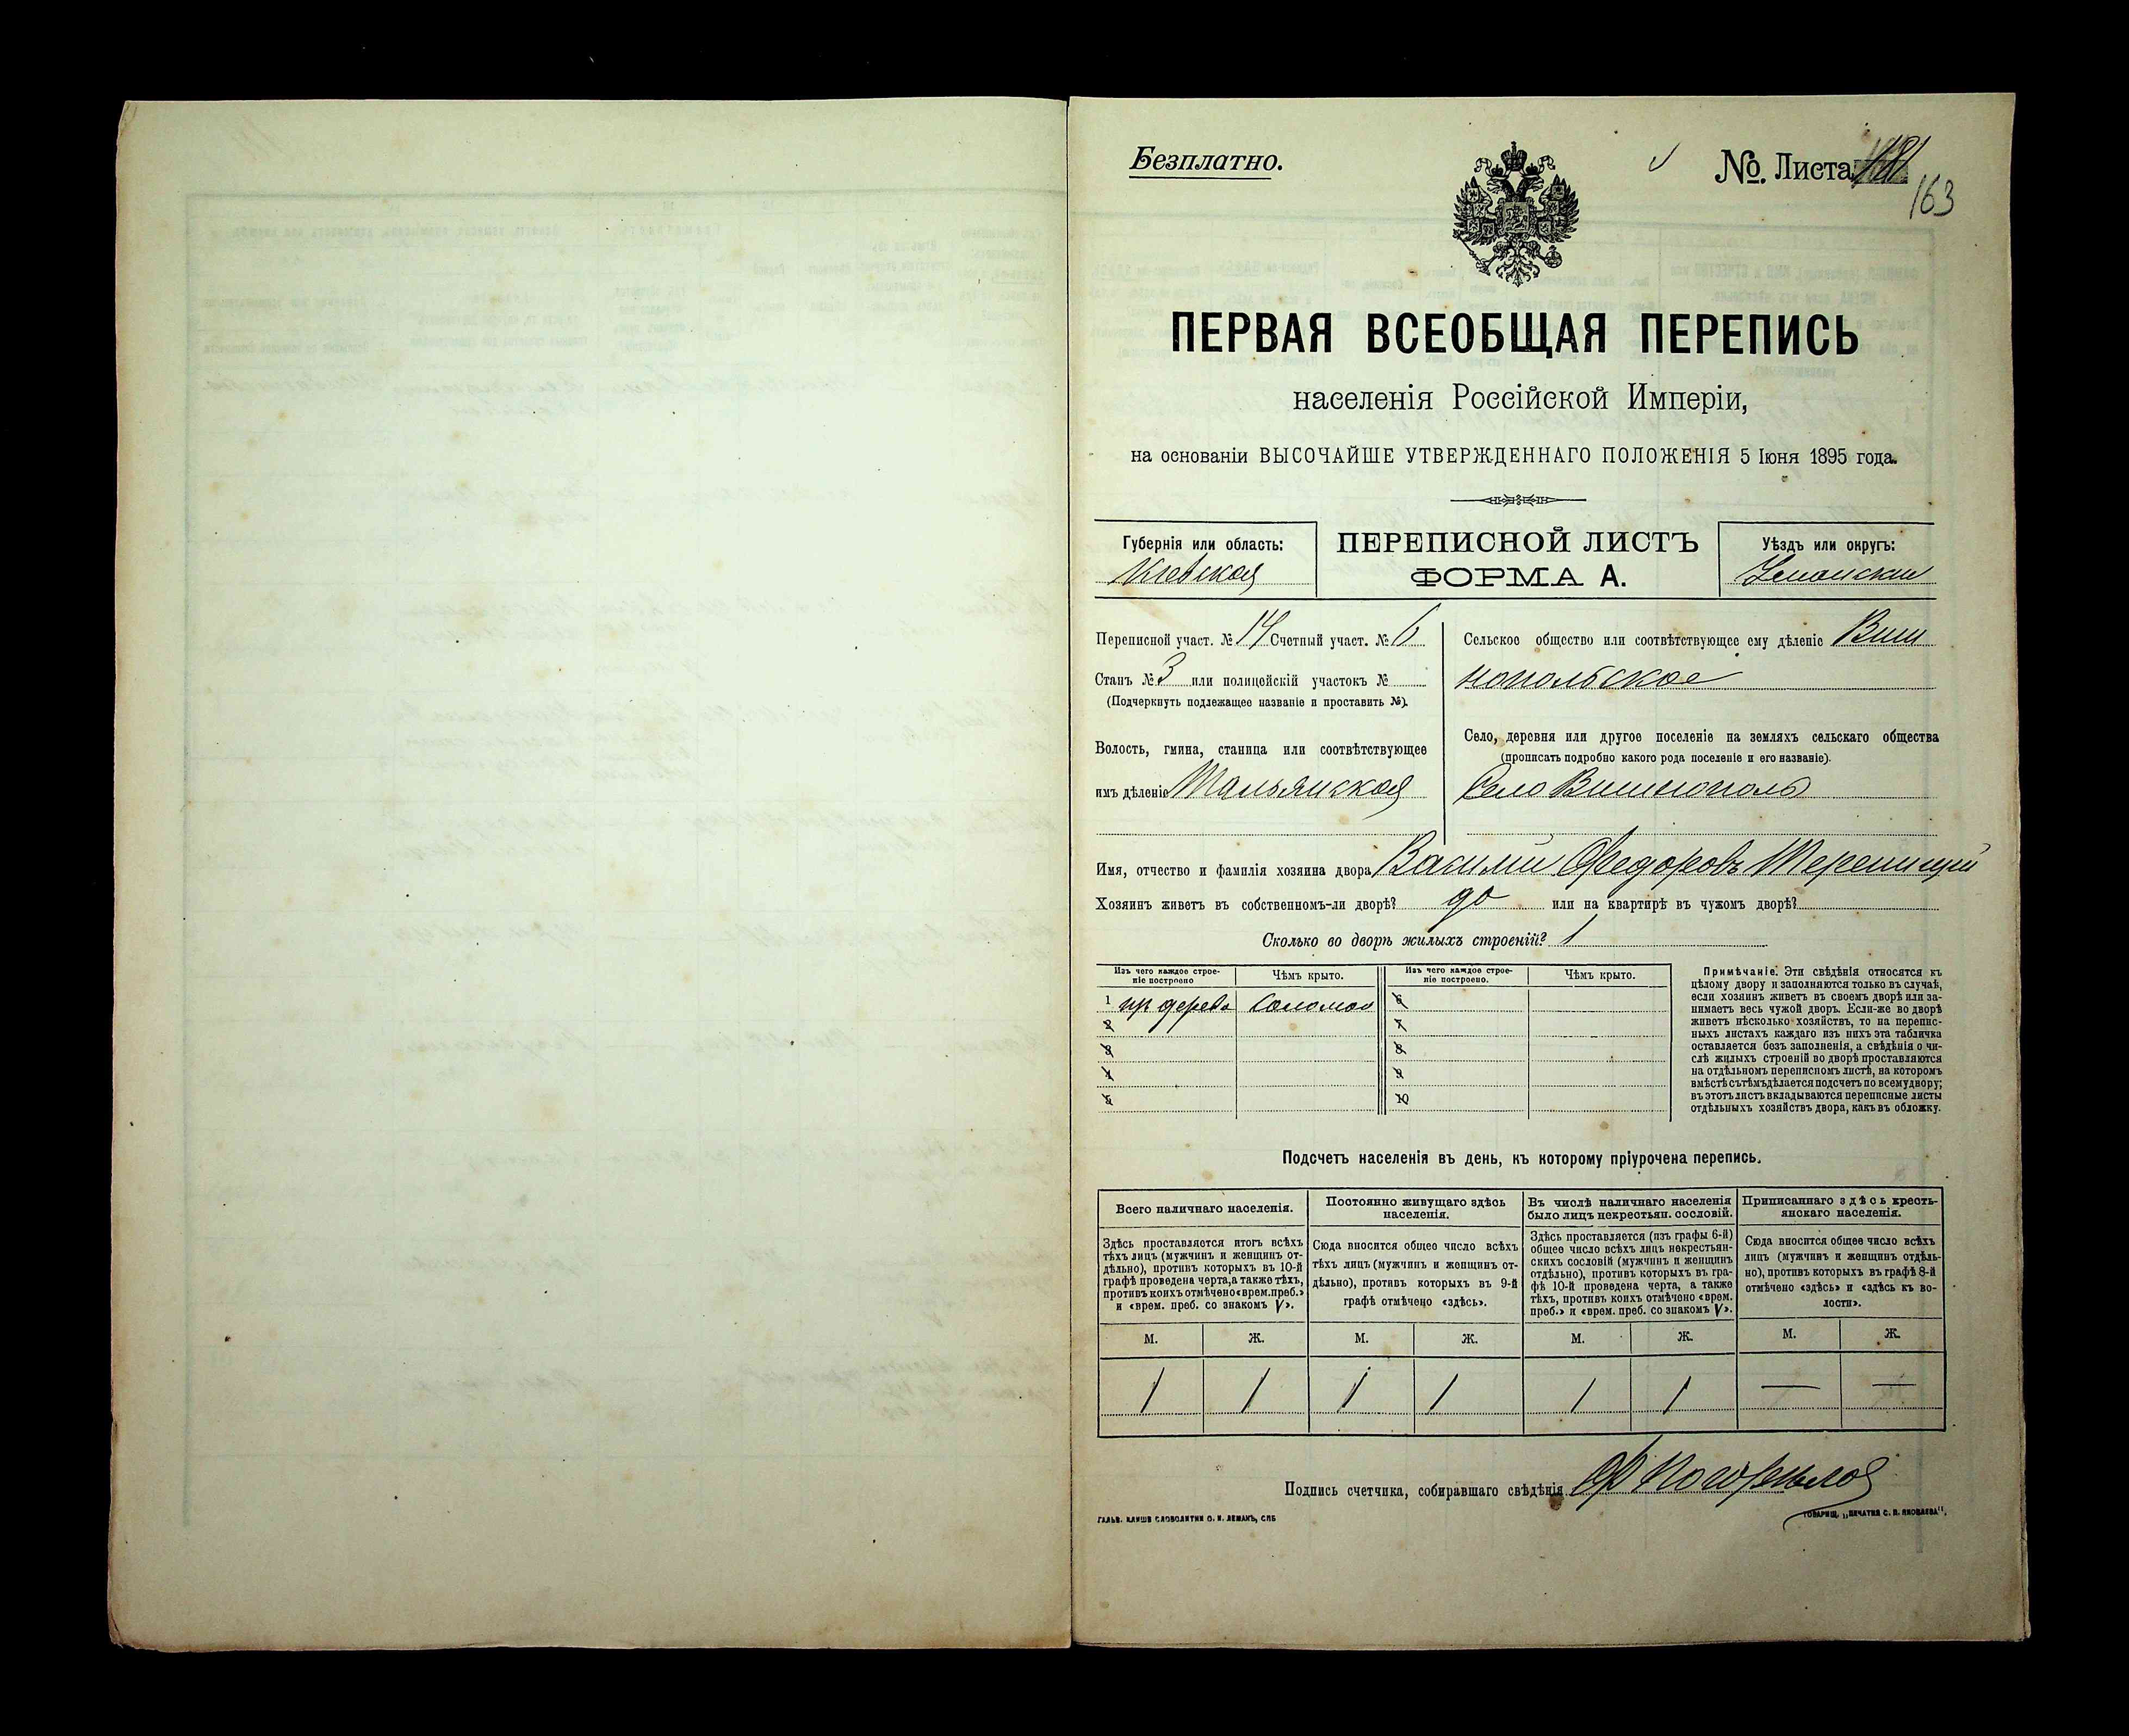 Безплатно.
№. Листа 181
163
ПЕРВАЯ ВСЕОБЩАЯ ПЕРЕПИСЬ
населенія Россійской Имперіи,
на основаніи ВЫСОЧАЙШЕ УТВЕРЖДЕННАГО ПОЛОЖЕНІЯ 5 Іюня 1895 года.
Губернія или область:
Кіевская
ПЕРЕПИСНОЙ ЛИСТЪ
ФОРМА А.
Уѣздъ или округъ:
Уманскій
Переписной участ. № 14 Счетный участ. № 6
Станъ № 3 или полицейскій участокъ №
(Подчеркнуть подлежащее названіе и проставить №).
Волость, гмина, станица или соотвѣтствующее
имъ дѣленіе Тальянская
Сельское общество или соотвѣтствующее ему дѣленіе Виш
нопольское
Село, деревня или другое поселеніе на земляхъ сельскаго общества
(прописать подробно какого рода поселеніе и его названіе).
Село Вишнополь
Имя, отчество и фамилія хозяина двора Василій Федоровъ
Хозяинъ живетъ въ собственномъ-ли дворѣ? да или на квартирѣ въ чужомъ дворѣ?
Сколько во дворѣ жилыхъ строеній? 1
Изъ чего каждое строе-
ніе построено
Чѣмъ крыто.
Изъ чего каждое строе-
ніе построено.
Чѣмъ крыто.
1 дерева соломою 6
2 7
3 8
4 9
5 10
Примѣчаніе. Эти свѣдѣнія относятся къ
цѣлому двору и заполняются только въ случаѣ,
если хозяинъ живетъ въ своемъ дворѣ или за-
нимаетъ весь чужой дворъ. Если-же во дворѣ
живетъ нѣсколько хозяйствъ, то на перепис-
ныхъ листахъ каждаго изъ нихъ эта табличка
оставляется безъ заполненія, а свѣдѣнія о чи-
слѣ жилыхъ строеній во дворѣ проставляются
на отдѣльномъ переписномъ листѣ, на которомъ
вмѣстѣ съ тѣмъ дѣлается подсчетъ по всему двору;
въ этотъ листъ вкладываются переписные листы
отдѣльныхъ хозяйствъ двора, какъ въ обложку.
Подсчетъ населенія въ день, къ которому пріурочена перепись.
Всего наличнаго населенія.
Здѣсь проставляется итогъ всѣхъ
тѣхъ лицъ (мужчинъ и женщинъ от-
дѣльно), противъ которыхъ въ 10-й
графѣ проведена черта, а также тѣхъ,
противъ коихъ отмѣчено «врем. преб.»
и «врем. преб. со знакомъ V».
Постоянно живущаго здѣсь
населенія.
Сюда вносится общее число всѣхъ
тѣхъ лицъ (мужчинъ и женщинъ от-
дѣльно), противъ которыхъ въ 9-й
графѣ отмѣчено «здѣсь».
Въ числѣ наличнаго населенія
было лицъ некрестьян. сословій.
Здѣсь проставляется (изъ графы 6-й)
общее число всѣхъ лицъ некрестьян-
скихъ сословій (мужчинъ и женщинъ
отдѣльно), противъ которыхъ въ гра-
фѣ 10-й проведена черта, а также
тѣхъ, противъ коихъ отмѣчено «врем.
преб.» и «врем. преб. со знакомъ V».
Приписаннаго здѣсь кресть-
янскаго населенія.
Сюда вносится общее число всѣхъ
лицъ (мужчинъ и женщинъ отдѣль-
но), противъ которыхъ въ графѣ 8-й
отмѣчено «здѣсь» и «здѣсь къ во-
лости».
М. Ж. М. Ж. М. Ж. М. Ж.
1 1 1 1 1 1 — —
Подпись счетчика, собиравшаго свѣдѣнія
ГАЛЬВ. КЛИШЕ СЛОВОЛИТНИ О. И. ЛЕМАНЪ, СПБ
ТОВАРИЩ. „ПЕЧАТНЯ С. П. ЯКОВЛЕВА".